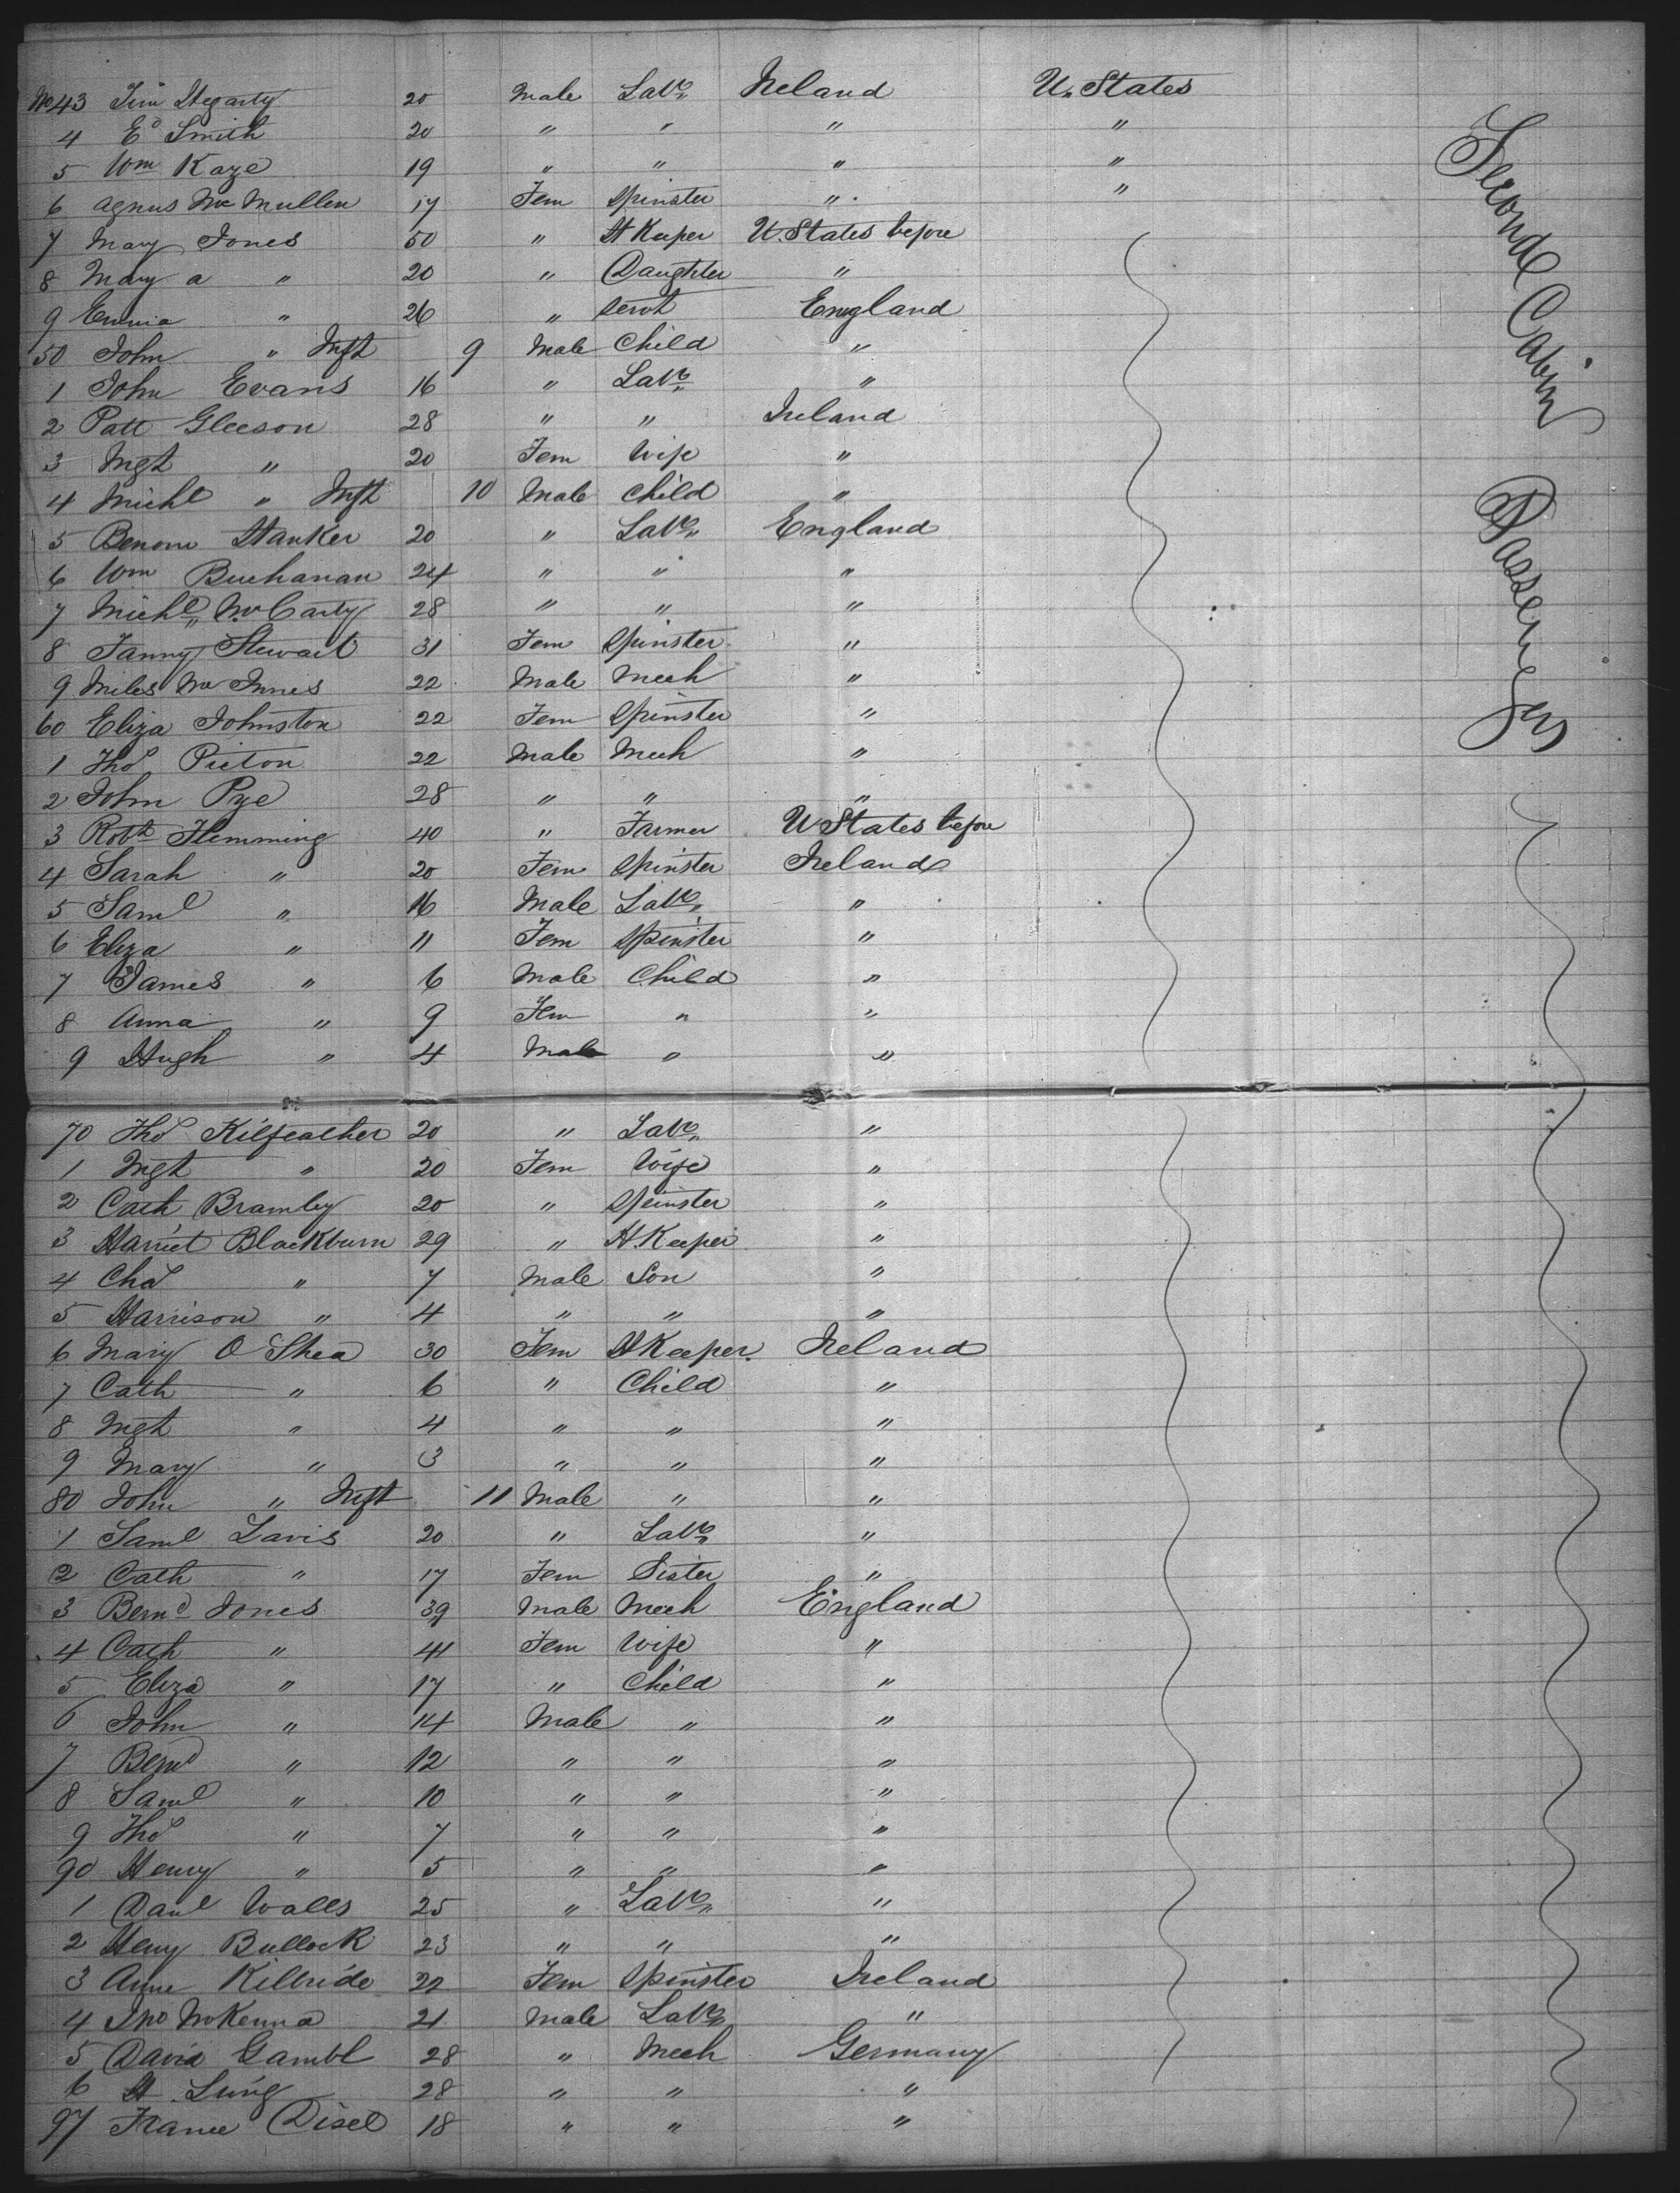 No 43 Tim Hegarty 20 Male Labr Ireland U. States
4 Ed Smith 20 " " " "
5 Wm Kaze 19 " " " "
6 Agnus Mc Mullen 17 Fem Spinster " "
7 Mary Jones 50 " H Keeper U. States before
8 Mary a " 20 " Daughter "
9 Emma " 26 " Servt England
50 John " Inft 9 Male Child "
1 John Evans 16 " Labr "
2 Patt Gleeson 28 " " Ireland
3 Mgt " 20 Fem Wife "
4 Michl " Inft 10 Male Child "
5 Benom Hanker 20 " Labr England
6 Wm Buchanan 24 " " "
7 Michl McCarty 28 " " "
8 Fanny Stewart 31 Fem Spinster "
9 Miles Mc Innes 22 Male Mech "
60 Eliza Johnston 22 Fem Spinster "
1 Thos Picton 22 Male Mech "
2 John Pye 28 " " "
3 Robt Flemming 40 " Farmer U States before
4 Sarah " 20 Fem Spinster Ireland
5 Saml " 16 Male Labr "
6 Eliza " 11 Fem Spinster "
7 James " 6 Male Child "
8 Anna " 9 Fem " "
9 Hugh " 4 Male " "
70 Thos Kilfeather 20 " Labr "
1 Mgt " 20 Fem Wife "
2 Cath Bramley 20 " Spinster "
3 Harriet Blackburn 29 " H. Keeper "
4 Chas " 7 Male Son "
5 Harrison " 4 " " "
6 Mary O Shea 30 Fem H Keeper Ireland
7 Cath " 6 " Child "
8 Mgt " 4 " " "
9 Mary " 3 " " "
80 John " Inft 11 Male " "
1 Saml Davis 20 " Labr "
2 Cath " 17 Fem Sister "
3 Bernd Jones 39 Male Mech England
4 Cath " 41 Fem Wife "
5 Eliza " 17 " Child "
6 John " 14 Male " "
7 Bernd " 12 " " "
8 Saml " 10 " " "
9 Thos " 7 " " "
90 Henry " 5 " " "
1 Danl Walls 25 " Labr "
2 Heny Bullock 23 " " "
3 Anne Kilbride 22 Fem Spinster Ireland
4 Jno McKenna 21 Male Labr "
5 David Gambl 28 " Mech Germany
6 H. Lung 28 " " "
97 Franee Disel 18 " " "
Second Cabin Passengers